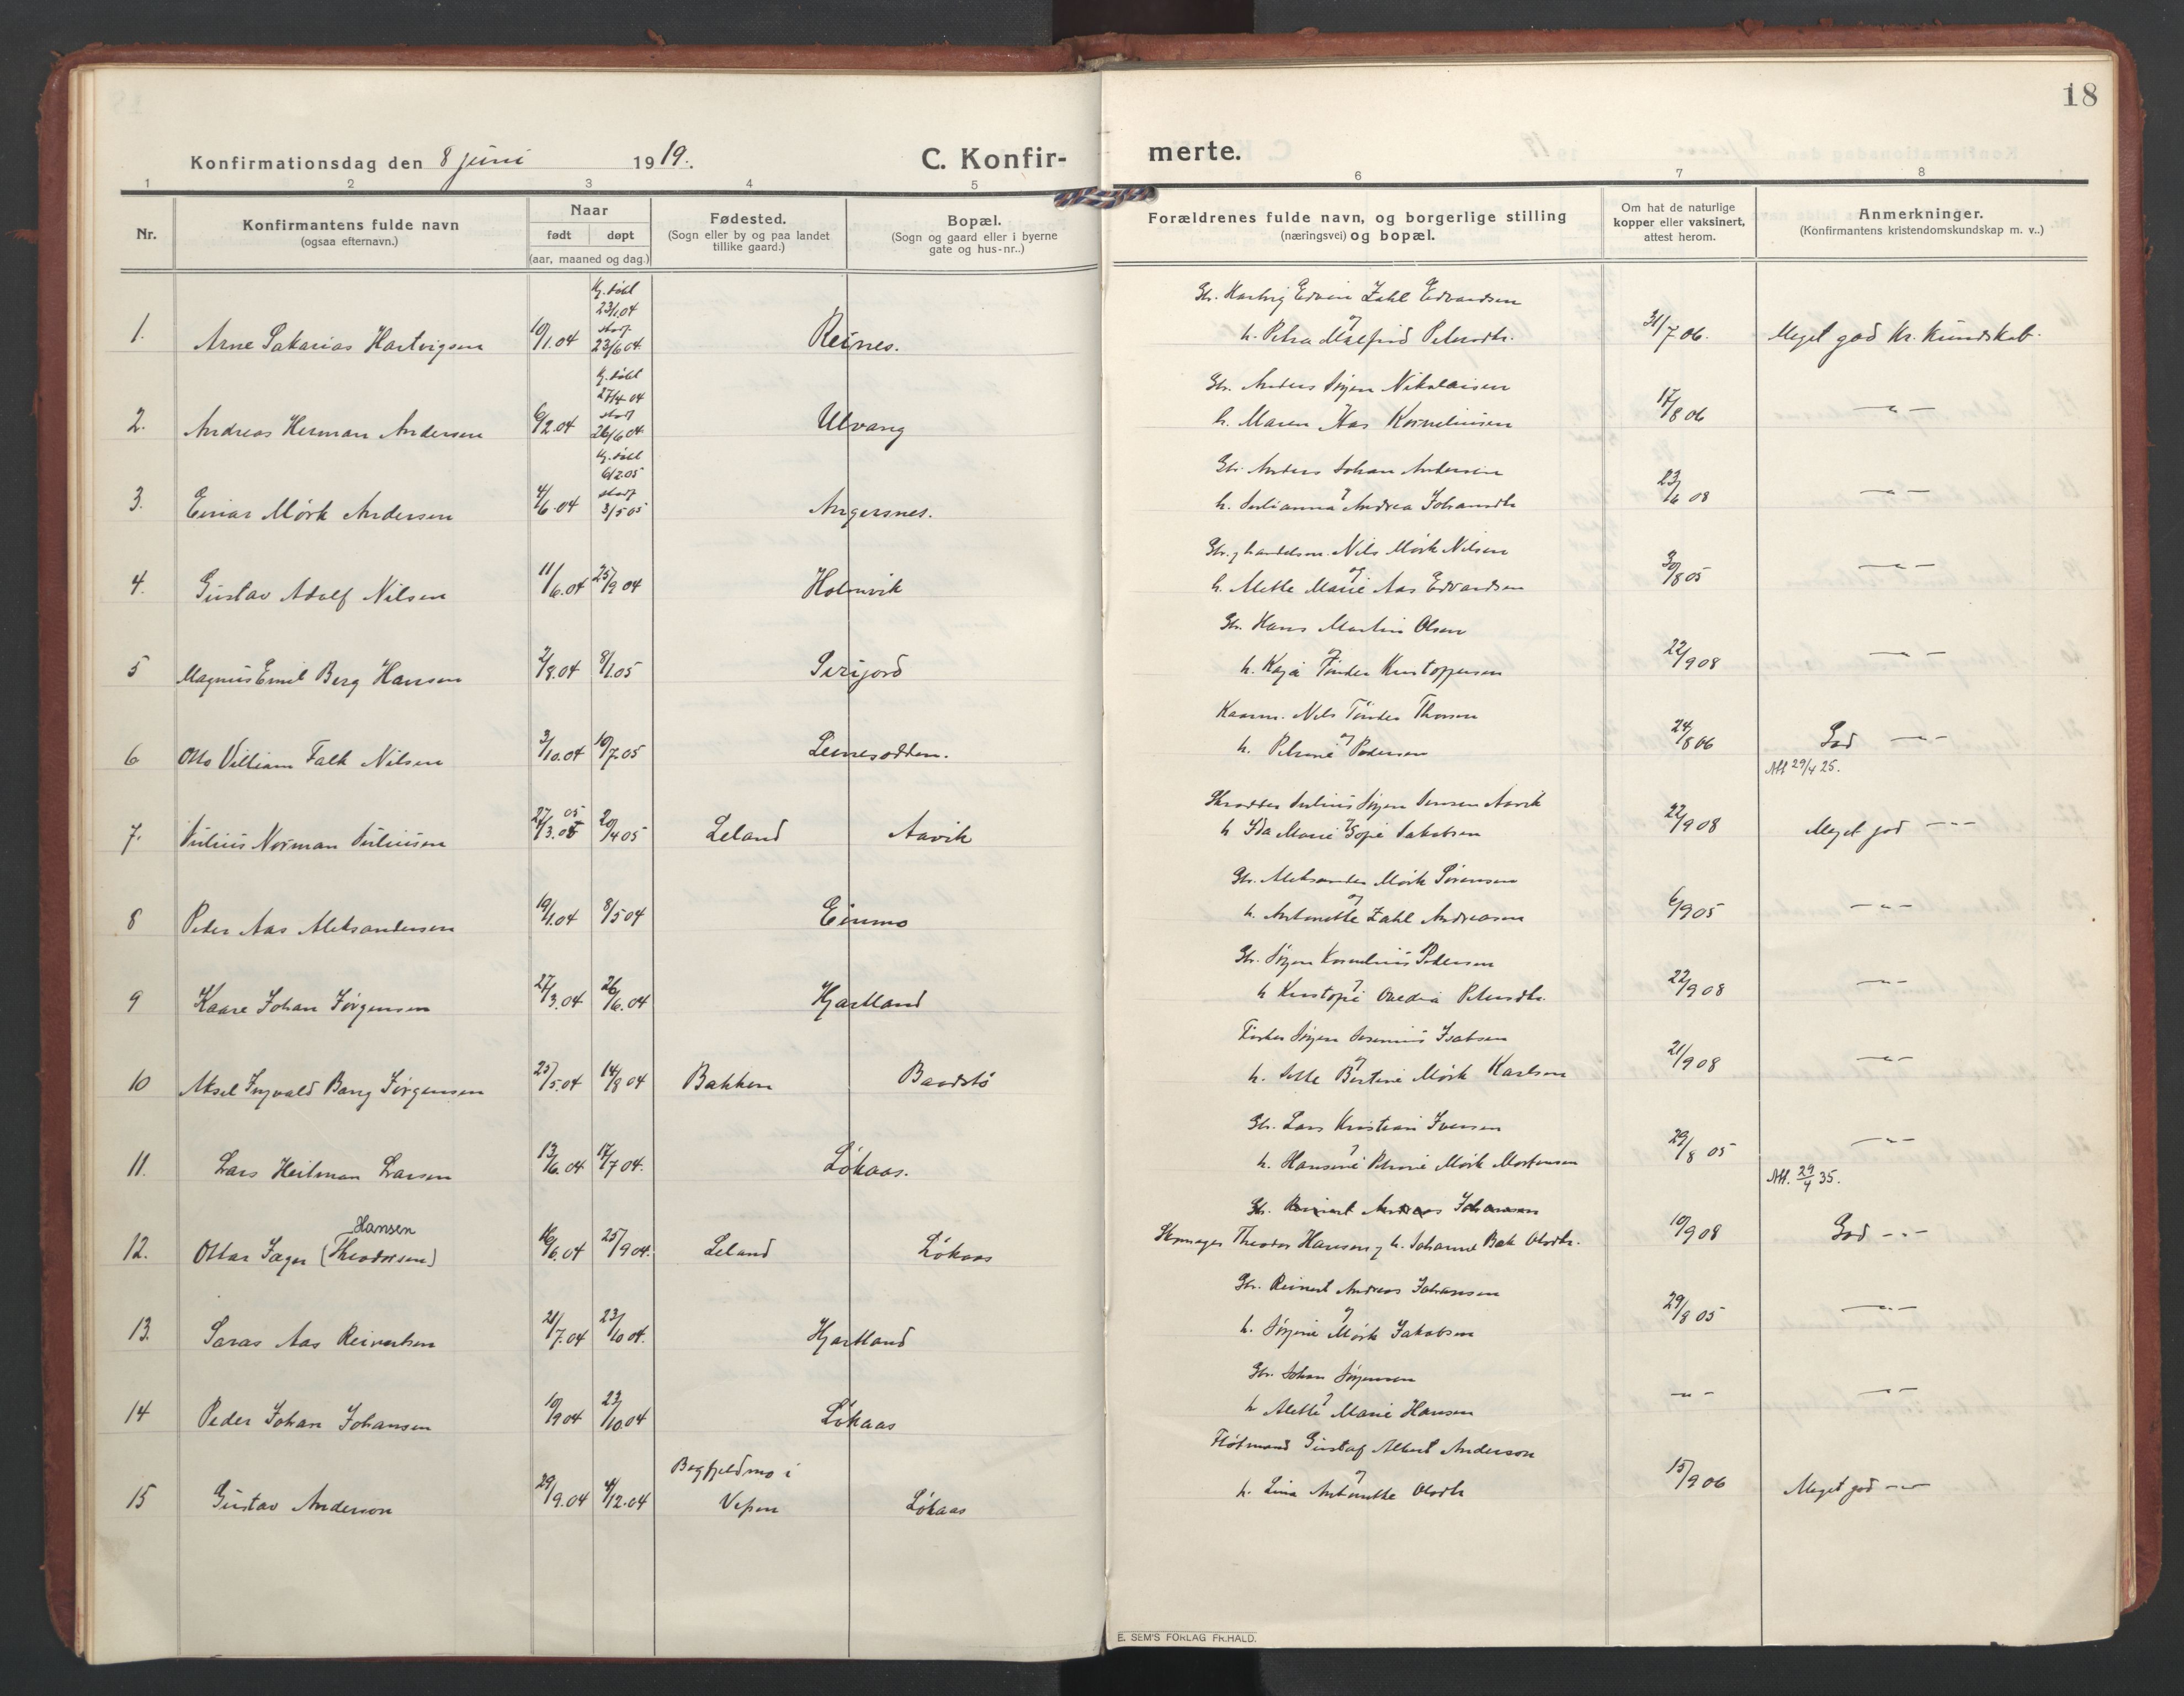 18
Konfirmationsdag den 8 juni 1919.
C. Konfir-
merte.
1 2 3 4 5 6 7 8
Nr.
Konfirmantens fulde navn
(ogsaa efternavn.)
Naar
født døpt
(aar, maaned og dag.)
Fødested.
(Sogn eller by og paa landet
tillike gaard.)
Bopæl.
(Sogn og gaard eller i byerne
gate og hus-nr..)
Forældrenes fulde navn, og borgerlige stilling
(næringsvei) og bopæl.
Om hat de naturlige
kopper eller vaksinert,
attest herom.
Anmerkninger.
(Konfirmantens kristendomskundskap m. v..)
1. Arne Sakarias Hartvigsen 10/1.04 hj.døbt 23/1.04 stadf. 23/6 04. Reines.
Gbr. Hartvig Edvin Zahl Edvardsen
og
h. Petra Malfrid Petersdtr. 31/7 06. Meget god kr. kundskab.
2. Andreas Herman Andersen 6/2.04 hj.døbt 27/4 04 stadf 26/6 04. Ulvang
Gbr. Anders Jørgen Nikolaisen
h. Maren Aas Korneliusen 17/8 06 —"—
3. Einar Mørk Andersen 4/6.04 hj.døbt 6/2.05 stadf 3/5 05 Angersnes.
Gbr. Anders Johan Andersen
h. Julianna Andrea Johansdtr 23/6 08 —"—
4. Gustav Adolf Nilsen 11/6.04 25/9 04 Holmvik
Gbr. og handelsm. Nils Mørk Nilsen
og
h. Mette Marie Aas Edvardsen 30/8 05 —"—
5 Magnus Emil Berg Hansen 2/8.04 8/1.05
Gbr. Hans Martin Olsen
og
h. Kaja Tønder Kristoffersen 22/9 08 —"—
6 Otto Villiam Falk Nilsen 3/10.04 10/7.05 Leinesodden.
Kaarm. Nils Tønder Thorsen
og
h. Petrine Pedersen 24/8 06 God —"—
Att 29/4 25.
7. Julius Norman Juliusen 27/3.05 05 20/4 05 Leland Aavik
Skrædder Julius Jørgen Jensen Aavik
h Ida Marie Sofie Jakobsen 22/9 08 Meget god —"—
8 Peder Aas Aleksandersen 19/1.04 8/5 04 Einmo
Gbr. Aleksander Mørk Sørensen
og
h. Antonette Zahl Andreasen 6/9 05 —"—
9 Kaare Johan Jørgensen 27/3.04 26/6.04 Hjartland
Gbr. Jørgen Kornelius Pedersen
h Kristofie Ovedia Petersdtr. 22/9 08 —"—
10 Aksel Ingvald Bang Jørgensen 25/5.04 14/8 04 Bakken Baadstø
Fisker Jørgen Isaksen
og
h. Bertine Mørk Karlsen 21/9 08 —"—
11. Lars Heitman Larsen 13/6 04 17/7 04. Løkaas.
Gbr. Lars Kristian Iversen
h. Hansine Petrine Mørk Mortensen 29/8 05 —"—
Att. 29/4 35.
12. Ottar Jæger (Theodorsen) Hansen 16/6.04 25/9 04. Leland Løkaas
Gbr. Reinert Andreas Johansen
Skomager Theodor Hansen og h. Johanne Bek Olsdtr. 10/9 08 God —"—
13. Saras Aas Reinertsen 21/7.04 23/10 04. Hjartland
Gbr. Reinert Andreas Johansen
og
h. Jørgine Mørk Jakobsen 29/8 05 —"—
14 Peder Johan Johansen 10/9 04 23/10 04 Løkaas
Gbr. Johan Jørgensen
h Mette Marie Hansen —"— —"—
15 Gustav Anderson 29/9.04 4/12.04 Bagfjeldmo i
Vefsen Løkaas
Fløtmand Gustaf Albert Anderson
og
h. Lina Antonette Olsdtr 15/9 06 Meget god —"—
E. SEM'S FORLAG FR.HALD.